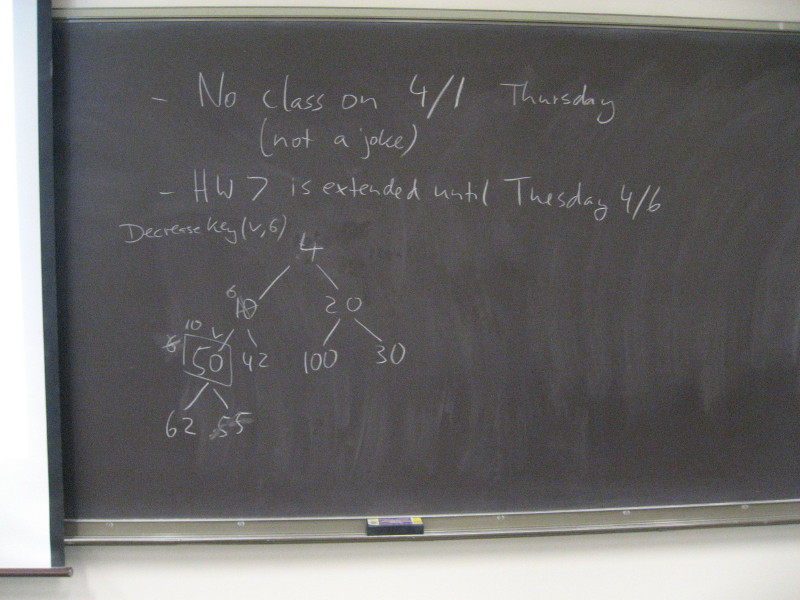 - No class on 4/1 Thursday
(not a joke)
- HW 7 is extended until Tuesday 4/6
Decrease Key (v, 6)
4
6 10 20
6 10 v
50 42 100 30
62 55